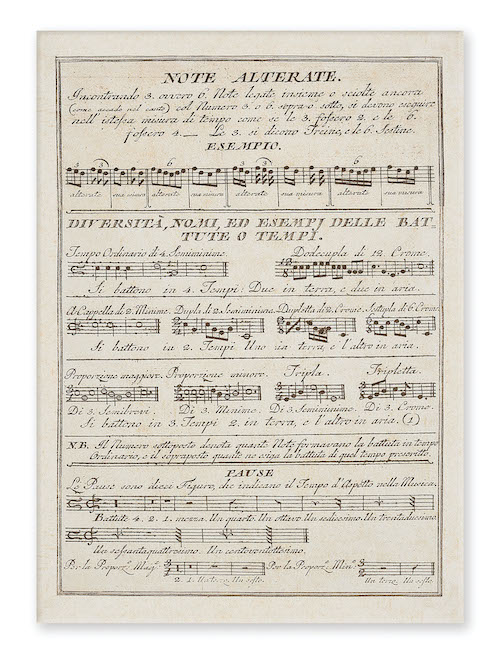 NOTE ALTERATE.
Incontrando 3. ovvero 6. Note legate insieme o sciolte ancora
(come accade nel canto) col Numero 3. o 6. sopra o sotto, si devono eseguire
nell' istessa misura di tempo come se le 3. fossero 2. e le 6.
fossero 4. — Le 3. si dicono Trine, e le 6. Sestine.
ESEMPIO.
3 3 6 6 3 3 6 6
alterate sua misura alterate sua misura alterate sua misura alterate sua misura
DIVERSITÀ, NOMI, ED ESEMPJ DELLE BAT-
TUTE O TEMPI.
Tempo Ordinario di 4. Semiminime. Dodecupla di 12. Crome.
12
8
Si battono in 4. Tempi: Due in terra, e due in aria.
A Cappella di 2. Minime. Dupla di 2. Semiminime. Dupletta di 2. Crome. Sestupla di 6. Crome.
Si battono in 2. Tempi Uno in terra, e l'altro in aria.
Proporzione maggiore. Proporzione minore. Tripla. Tripletta.
Di 3. Semibrevi. Di 3. Minime. Di 3. Semiminime. Di 3. Crome.
Si battono in 3. Tempi 2. in terra, e l'altro in aria. (1)
N.B. Il Numero sottoposto denota quante Note formavano la battuta in tempo
Ordinario, e il sopraposto quante ne esiga la battuta di quel tempo prescritto.
PAUSE
Le Pause sono dieci Figure, che indicano il Tempo d'Aspetto nella Musica.
Battute 4. 2. 1. mezza. Un quarto. Un ottavo. Un sedicesimo. Un trentaduesimo
Un sessantaquattresimo. Un centoventottesimo.
Per la Proporz. Magg. Per la Proporz. Min.
2. 1. Un terzo. Un sesto. Un terzo. Un sesto.